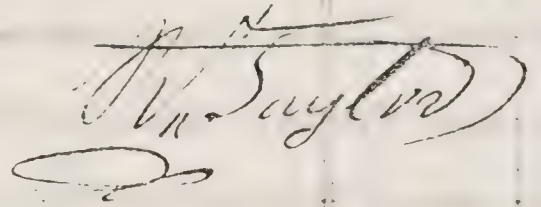 Wm. Taylor